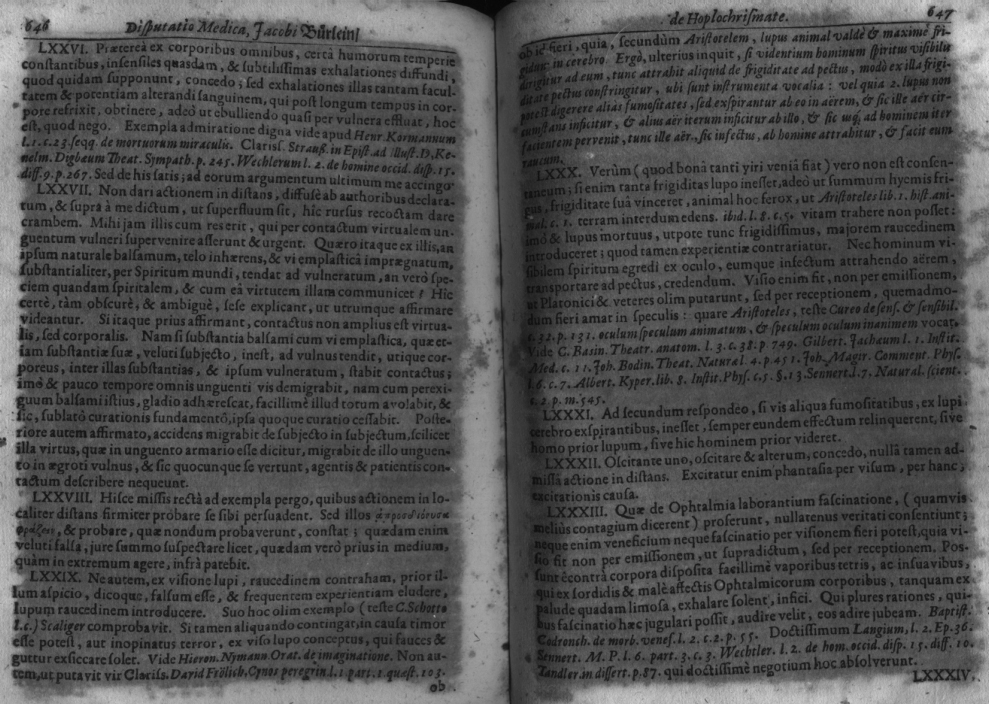 646 Disputatio Medica, Jacobi Bürleini
LXXVI. Præterea ex corporibus omnibus, certâ humorum temperie
constantibus, insensiles quasdam, & subtilissimas exhalationes diffundi,
quod quidam supponunt, concedo; sed exhalationes illas tantam facul-
tatem & potentiam alterandi sanguinem, qui post longum tempus in cor-
pore refrixit, obtinere, adeò ut ebulliendo quasi per vulnera effluat, hoc
est, quod nego. Exempla admiratione digna vide apud Henr. Kormannum
l. 1. c. 23. seqq. de mortuorum miraculis. Clariss. Strauß. in Epist. ad illust. D, Ke-
nelm. Digbæum Theat. Sympath. p. 245. Wechlerum l. 2. de homine occid. disp. 15.
diff. 9. p. 267. Sed de his satis; ad eorum argumentum ultimum me accingo
LXXVII. Non dari actionem in distans, diffusè ab authoribus declara-
tum, & suprà à me dictum, ut superfluum sit, hic rursus recoctam dare
crambem. Mihi jam illis cum res erit, qui per contactum virtualem un-
guentum vulneri supervenire asserunt & urgent. Quæro itaque ex illis, an
ipsum naturale balsamum, telo inhærens, & vi emplasticâ imprægnatum,
substantialiter, per Spiritum mundi, tendat ad vulneratum, an verò spe-
ciem quandam spiritalem, & cum eâ virtutem illam communicet? Hic
certè, tàm obscurè, & ambiguè, sese explicant, ut utrumque affirmare
videantur. Si itaque prius affirmant, contactus non amplius est virtua-
lis, sed corporalis. Nam si substantia balsami cum vi emplastica, quæ et-
iam substantiæ suæ, veluti subjecto, inest, ad vulnus tendit, utique cor-
poreus, inter illas substantias, & ipsum vulneratum, stabit contactus;
imò & pauco tempore omnis unguenti vis demigrabit, nam cum perexi-
guum balsami istius, gladio adhærescat, facillimè illud totum avolabit, &
sic, sublatô curationis fundamentô, ipsa quoque curatio cessabit. Poste-
riore autem affirmato, accidens migrabit de subjecto in subjectum, scilicet
illa virtus, quæ in unguento armario esse dicitur, migrabit de illo unguen-
to in ægroti vulnus, & sic quocunque se vertunt, agentis & patientis con-
tactum describere nequeunt.
LXXVIII. Hisce missis rectà ad exempla pergo, quibus actionem in lo-
caliter distans firmiter probare se sibi persuadent. Sed illos
& probare, quæ nondum probaverunt, constat; quædam enim
veluti falsa, jure summo suspectare licet, quædam verò prius in medium,
quàm in extremum agere, infrà patebit.
LXXIX. Ne autem, ex visione lupi, raucedinem contraham, prior il-
lum aspicio, dicoque, falsum esse, & frequentem experientiam eludere,
lupum raucedinem introducere. Suo hoc olim exemplo (teste C. Schotto
l. c.) Scaliger comprobavit. Si tamen aliquando contingat, in causa timor
esse potest, aut inopinatus terror, ex viso lupo conceptus, qui fauces &
guttur exsiccare solet. Vide Hieron. Nymann Orat. de imaginatione. Non au-
tem, ut putavit vir Clariss. David Frölich. Cynos peregrin. l. 1. part. 1. quæst. 103.
ob
de Hoplochrismate. 647
ob id fieri, quia, secundùm Aristotelem, lupus animal valdè & maximè fri-
gidum in cerebro. Ergò, ulterius inquit, si videntium hominum spiritus visibilis
dirigitur ad eum, tunc attrahit aliquid de frigiditate ad pectus, modò ex illa frigi-
ditate pectus constringitur, ubi sunt instrumenta vocalia: vel quia 2. lupus non
potest digerere alias fumositates, sed exspirantur ab eo in aërem, & sic ille aër cir-
cumstans inficitur, & alius aër iterum inficitur ab illo, & sic usq; ad hominem iter
facientem pervenit, tunc ille aër, sic infectus, ab homine attrahitur, & facit eum
raucum.
LXXX. Verùm (quod bonâ tanti viri veniâ fiat) vero non est consen-
taneum; si enim tanta frigiditas lupo inesset, adeò ut summum hyemis fri-
gus, frigiditate suâ vinceret, animal hoc ferox, ut Aristoteles lib. 1. hist. ani-
mal. c. 1. terram interdum edens. ibid. l. 8. c. 5. vitam trahere non posset:
imò & lupus mortuus, utpote tunc frigidissimus, majorem raucedinem
introduceret; quod tamen experientiæ contrariatur. Nec hominum vi-
sibilem spiritum egredi ex oculo, eumque infectum attrahendo aërem,
transportare ad pectus, credendum. Visio enim fit, non per emissionem,
ut Platonici & veteres olim putarunt, sed per receptionem, quemadmo-
dum fieri amat in speculis: quare Aristoteles, teste Cureo de sens. & sensibil.
c. 32. p. 131. oculum speculum animatum, & speculum oculum inanimem vocat.
Vide C. Basin. Theatr. anatom. l. 3. c. 38. p. 749. Gilbert. Jachæum l. 1. Instit.
Med. c. 11. Joh. Bodin. Theat. Natural. 4. p. 451. Joh. Magir. Comment. Phys.
l. 6. c. 7. Albert. Kyper. lib. 8. Instit. Phys. c. 5. §. 13. Sennert. l. 7. Natural. scient.
c. 2. p. m. 545.
LXXXI. Ad secundum respondeo, si vis aliqua fumositatibus, ex lupi
cerebro exspirantibus, inesset, semper eundem effectum relinquerent, sive
homo prior lupum, sive hic hominem prior videret.
LXXXII. Oscitante uno, oscitare & alterum, concedo, nullâ tamen ad-
missâ actione in distans. Excitatur enim phantasia per visum, per hanc,
excitationis causa.
LXXXIII. Quæ de Ophtalmia laborantium fascinatione, (quamvis
melius contagium dicerent) proferunt, nullatenus veritati consentiunt;
neque enim veneficium neque fascinatio per visionem fieri potest, quia vi-
sio fit non per emissionem, ut supradictum, sed per receptionem. Pos-
sunt è contrà corpora disposita facillimè vaporibus tetris, ac insuavibus,
qui ex sordidis & malè affectis Ophtalmicorum corporibus, tanquam ex
palude quadam limosa, exhalare solent, infici. Qui plures rationes, qui-
bus fascinatio hæc jugulari possit, audire velit, eos adire jubeam. Baptist.
Codronch. de morb. venef. l. 2. c. 2. p. 55. Doctissimum Langium, l. 2. Ep. 36.
Sennert. M. P. l. 6. part. 3. c. 3. Wechtler. l. 2. de hom. occid. disp. 15. diff. 10.
Tandler. in dissert. p. 87. qui doctissimè negotium hoc absolverunt.
LXXXIV.